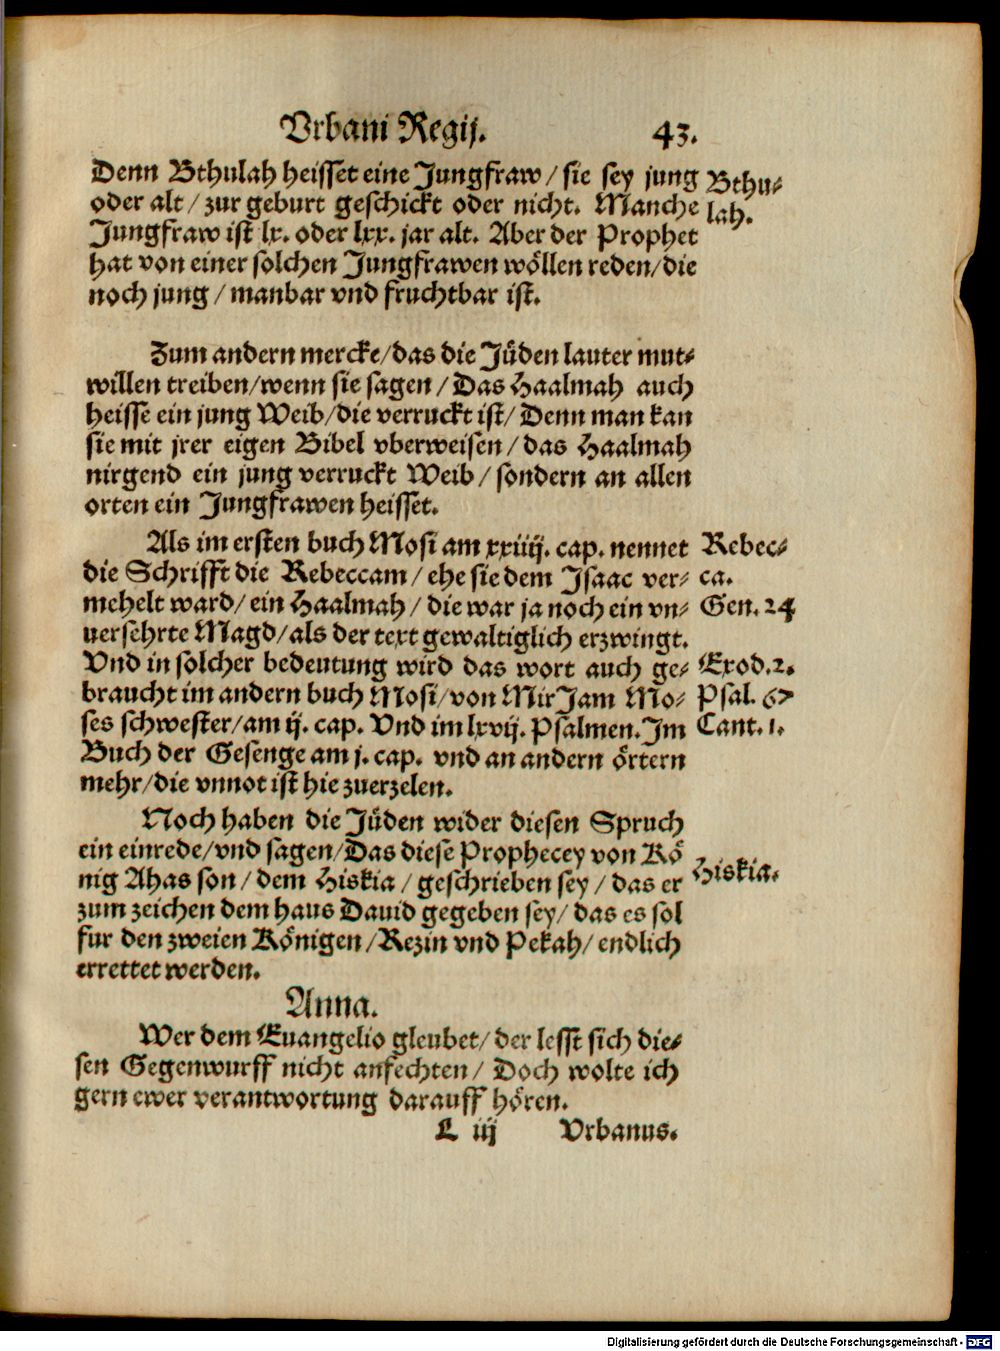 Vrbani Regij. 43.
Denn Bthulah heisset eine Jungfraw / sie sey jung
oder alt / zur geburt geschickt oder nicht. Manche
Jungfraw ist lx. oder lxx. jar alt. Aber der Prophet
hat von einer solchen Jungfrawen wöllen reden / die
noch jung / manbar vnd fruchtbar ist.
Bthu⸗
lah.
Zum andern mercke / das die Jüden lauter mut⸗
willen treiben / wenn sie sagen / Das Haalmah auch
heisse ein jung Weib / die verruckt ist / Denn man kan
sie mit jrer eigen Bibel vberweisen / das Haalmah
nirgend ein jung verruckt Weib / sondern an allen
orten ein Jungfrawen heisset.
Als im ersten buch Mosi am xxiiij. cap. nennet
die Schrifft die Rebeccam / ehe sie dem Isaac ver⸗
mehelt ward / ein Haalmah / die war ja noch ein vn⸗
uersehrte Magd / als der text gewaltiglich erzwingt.
Vnd in solcher bedeutung wird das wort auch ge⸗
braucht im andern buch Mosi / von MirJam Mo⸗
ses schwester / am ij. cap. Vnd im lxvij. Psalmen. Im
Buch der Gesenge am j. cap. vnd an andern örtern
mehr / die vnnot ist hie zuerzelen.
Rebec⸗
ca.
Gen. 24
Exod. 2.
Psal. 67
Cant. 1.
Noch haben die Jüden wider diesen Spruch
ein einrede / vnd sagen / Das diese Prophecey von Kö
nig Ahas son / dem Hiskia / geschrieben sey / das er
zum zeichen dem haus Dauid gegeben sey / das es sol
fur den zweien Königen / Rezin vnd Pekah / endlich
errettet werden.
Hiskia.
Anna.
Wer dem Euangelio gleubet / der lesst sich die⸗
sen Gegenwurff nicht anfechten / Doch wolte ich
gern ewer verantwortung darauff hören.
L iij Vrbanus.
Digitalisierung gefördert durch die Deutsche Forschungsgemeinschaft - DFG